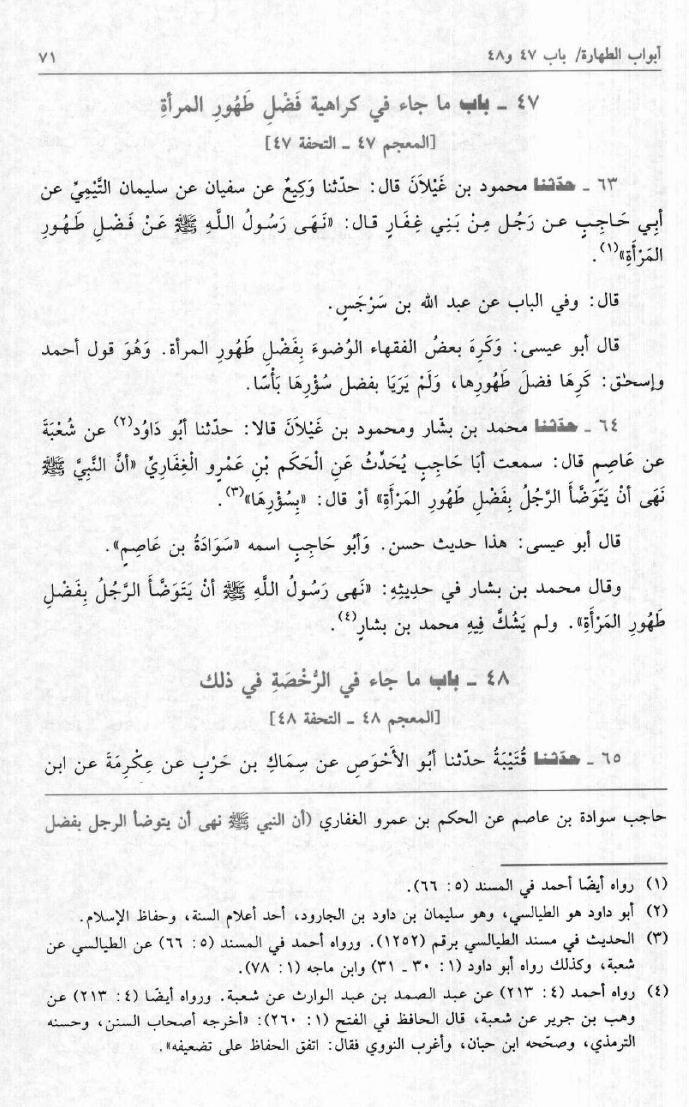 أبواب الطهارة/ باب ٤٧ و٤٨ ٧١
٤٧ ـ باب ما جاء في كراهية فَضْلِ طَهُورِ المرأةِ
[المعجم ٤٧ ـ التحفة ٤٧]
٦٣ ـ حدّثنا محمود بن غَيْلاَنَ قال: حدّثنا وَكِيعٌ عن سفيان عن سليمان التَّيْمِيِّ عن
أبِي حَاجِبٍ عن رَجُلٍ مِنْ بَنِي غِفَارٍ قال: «نَهَى رَسُولُ اللَّهِ ﷺ عَنْ فَضْلِ طَهُورِ
المَرْأَةِ»(١).
قال: وفي الباب عن عبد الله بن سَرْجَسٍ.
قال أبو عيسى: وَكَرِهَ بعضُ الفقهاء الوُضوءَ بِفَضْلِ طَهُورِ المرأة. وَهُوَ قول أحمد
وإسحٰق: كَرِهَا فضلَ طَهُورِها، وَلَمْ يَرَيَا بفضل سُؤْرِهَا بَأْسًا.
٦٤ ـ حدّثنا محمد بن بشّار ومحمود بن غَيْلاَنَ قالا: حدّثنا أبُو دَاوُد(٢) عن شُعْبَةَ
عن عَاصِمٍ قال: سمعت أبَا حَاجِبٍ يُحَدِّثُ عَنِ الْحَكَمِ بْنِ عَمْرٍو الْغِفَارِيِّ «أنَّ النَّبِيَّ ﷺ
نَهَى أنْ يَتَوَضَّأَ الرَّجُلُ بِفَضْلِ طَهُورِ المَرْأَةِ» أوْ قال: «بِسُؤْرِهَا»(٣).
قال أبو عيسى: هذا حديث حسن. وَأبُو حَاجِبٍ اسمه «سَوَادَةُ بن عَاصِمٍ».
وقال محمد بن بشار في حديثِهِ: «نَهى رَسُولُ اللَّهِ ﷺ أنْ يَتَوَضَّأَ الرَّجُلُ بِفَضْلِ
طَهُورِ المَرْأَةِ». ولم يَشُكَّ فِيهِ محمد بن بشارٍ(٤).
٤٨ ـ باب ما جَاء في الرُّخْصَةِ في ذلك
[المعجم ٤٨ ـ التحفة ٤٨]
٦٥ ـ حدّثنا قُتَيْبَةُ حدّثنا أبُو الأَحْوَصِ عن سِمَاكِ بن حَرْبٍ عن عِكْرِمَةَ عن ابن
حاجب سوادة بن عاصم عن الحكم بن عمرو الغفاري (أن النبي ﷺ نهى أن يتوضأ الرجل بفضل
(١) رواه أيضًا أحمد في المسند (٥: ٦٦).
(٢) أبو داود هو الطيالسي، وهو سليمان بن داود بن الجارود، أحد أعلام السنة، وحفاظ الإسلام.
(٣) الحديث في مسند الطيالسي برقم (١٢٥٢). ورواه أحمد في المسند (٥: ٦٦) عن الطيالسي عن
شعبة، وكذلك رواه أبو داود (١: ٣٠ ـ ٣١) وابن ماجه (١: ٧٨).
(٤) رواه أحمد (٤: ٢١٣) عن عبد الصمد بن عبد الوارث عن شعبة. ورواه أيضًا (٤: ٢١٣) عن
وهب بن جرير عن شعبة، قال الحافظ في الفتح (١: ٢٦٠): «أخرجه أصحاب السنن، وحسنه
الترمذي، وصحّحه ابن حبان، وأغرب النووي فقال: اتفق الحفاظ على تضعيفه».